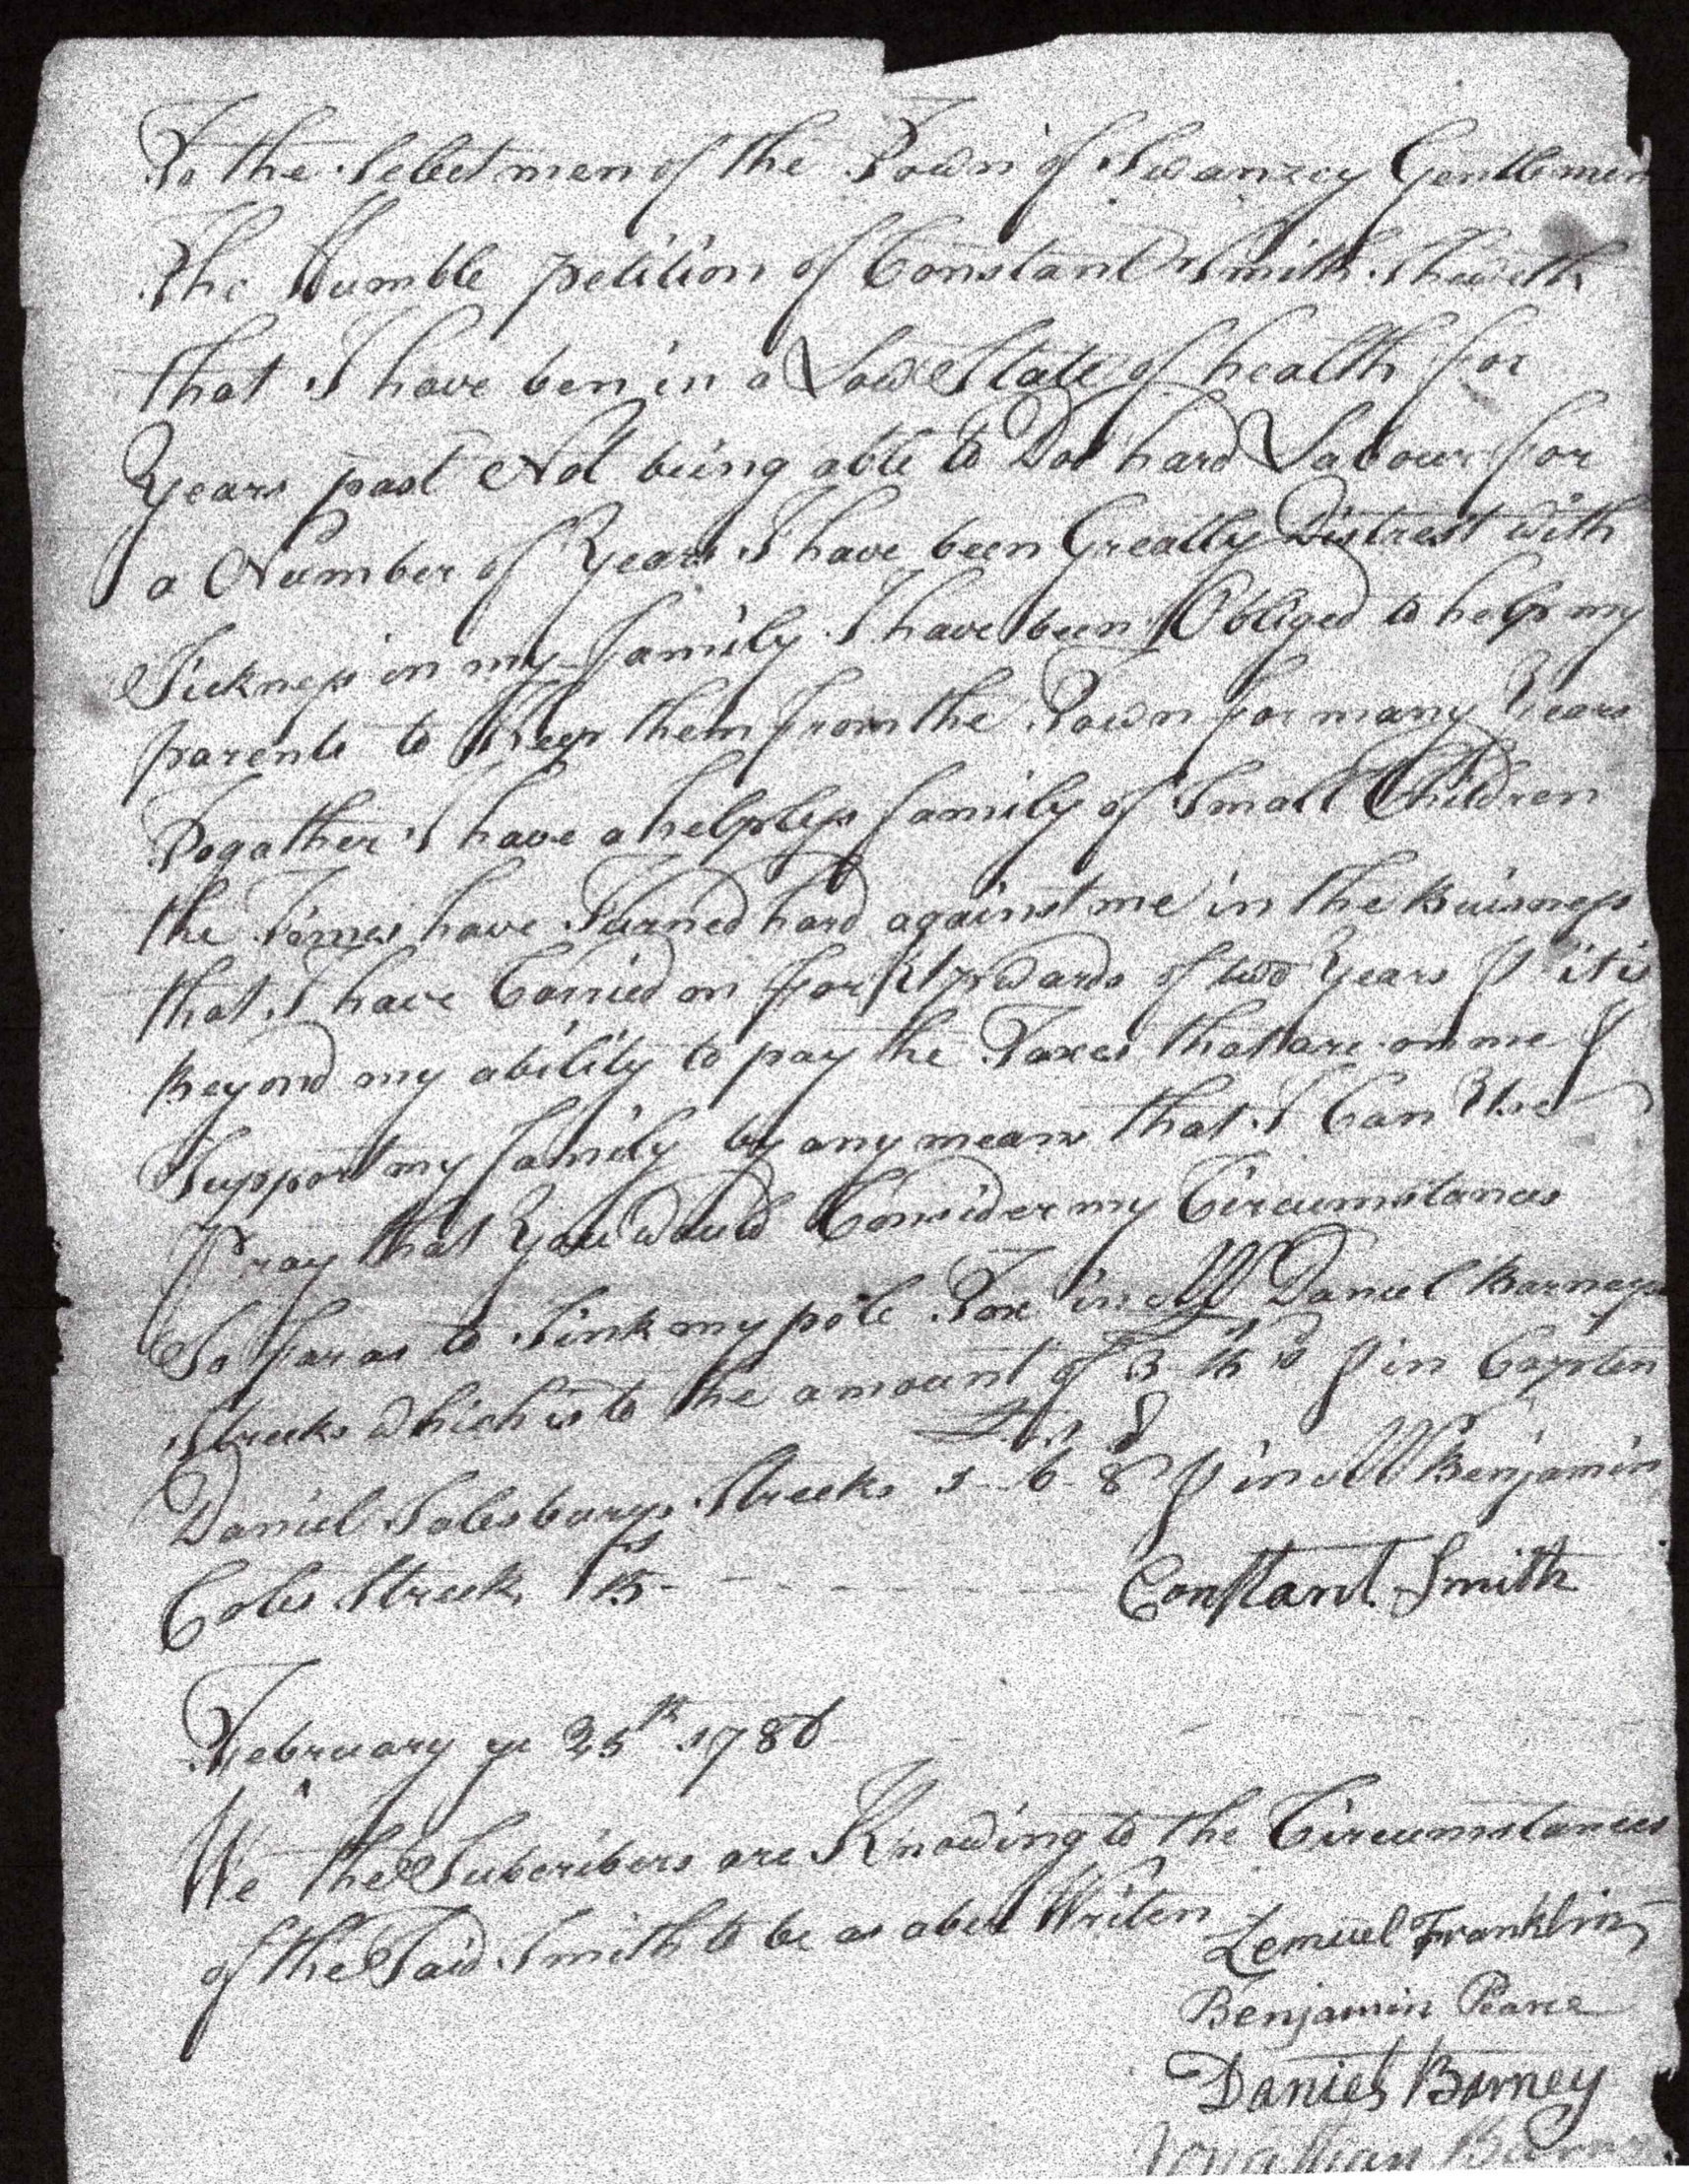 To the Selectmen of the Town of Swanzey Gentlemen
The Humble petition of Constant Smith Sheweth
that I have ben in a Low State of health for
Years past Not being able to Do hard Labour for
a Number of Years I have been Greatly Distrest with
Sickness in my family I have been Obliged to help my
parents to Keep them from the Town for many Years
Togather I have a helpless family of Small Children
the Times have Turned hard against me in the Buisness
that I have Carried on for Upwards of two Years & it is
Beyond my ability to pay the Taxes that are on me &
Support my family by any means that I Can Use
Pray that You Would Consider my Circumstances
So far as to Sink my pole Tax in Mr Daniel Barneys
Streeks which is to the amount of 3 - 15 & in Capten
£ s d
Daniel Salesburys Streeks 5 - 6 - 8 & in Mr Benjamin
Coles Streek 15 - Constant Smith
February ye 25th 1786
We the Subcribers are Knowing to the Circumstances
of the Said Smith to be as abov Writen
Lemuel Franklin
Benjamin Pearce
Daniel Barney
Jonathan